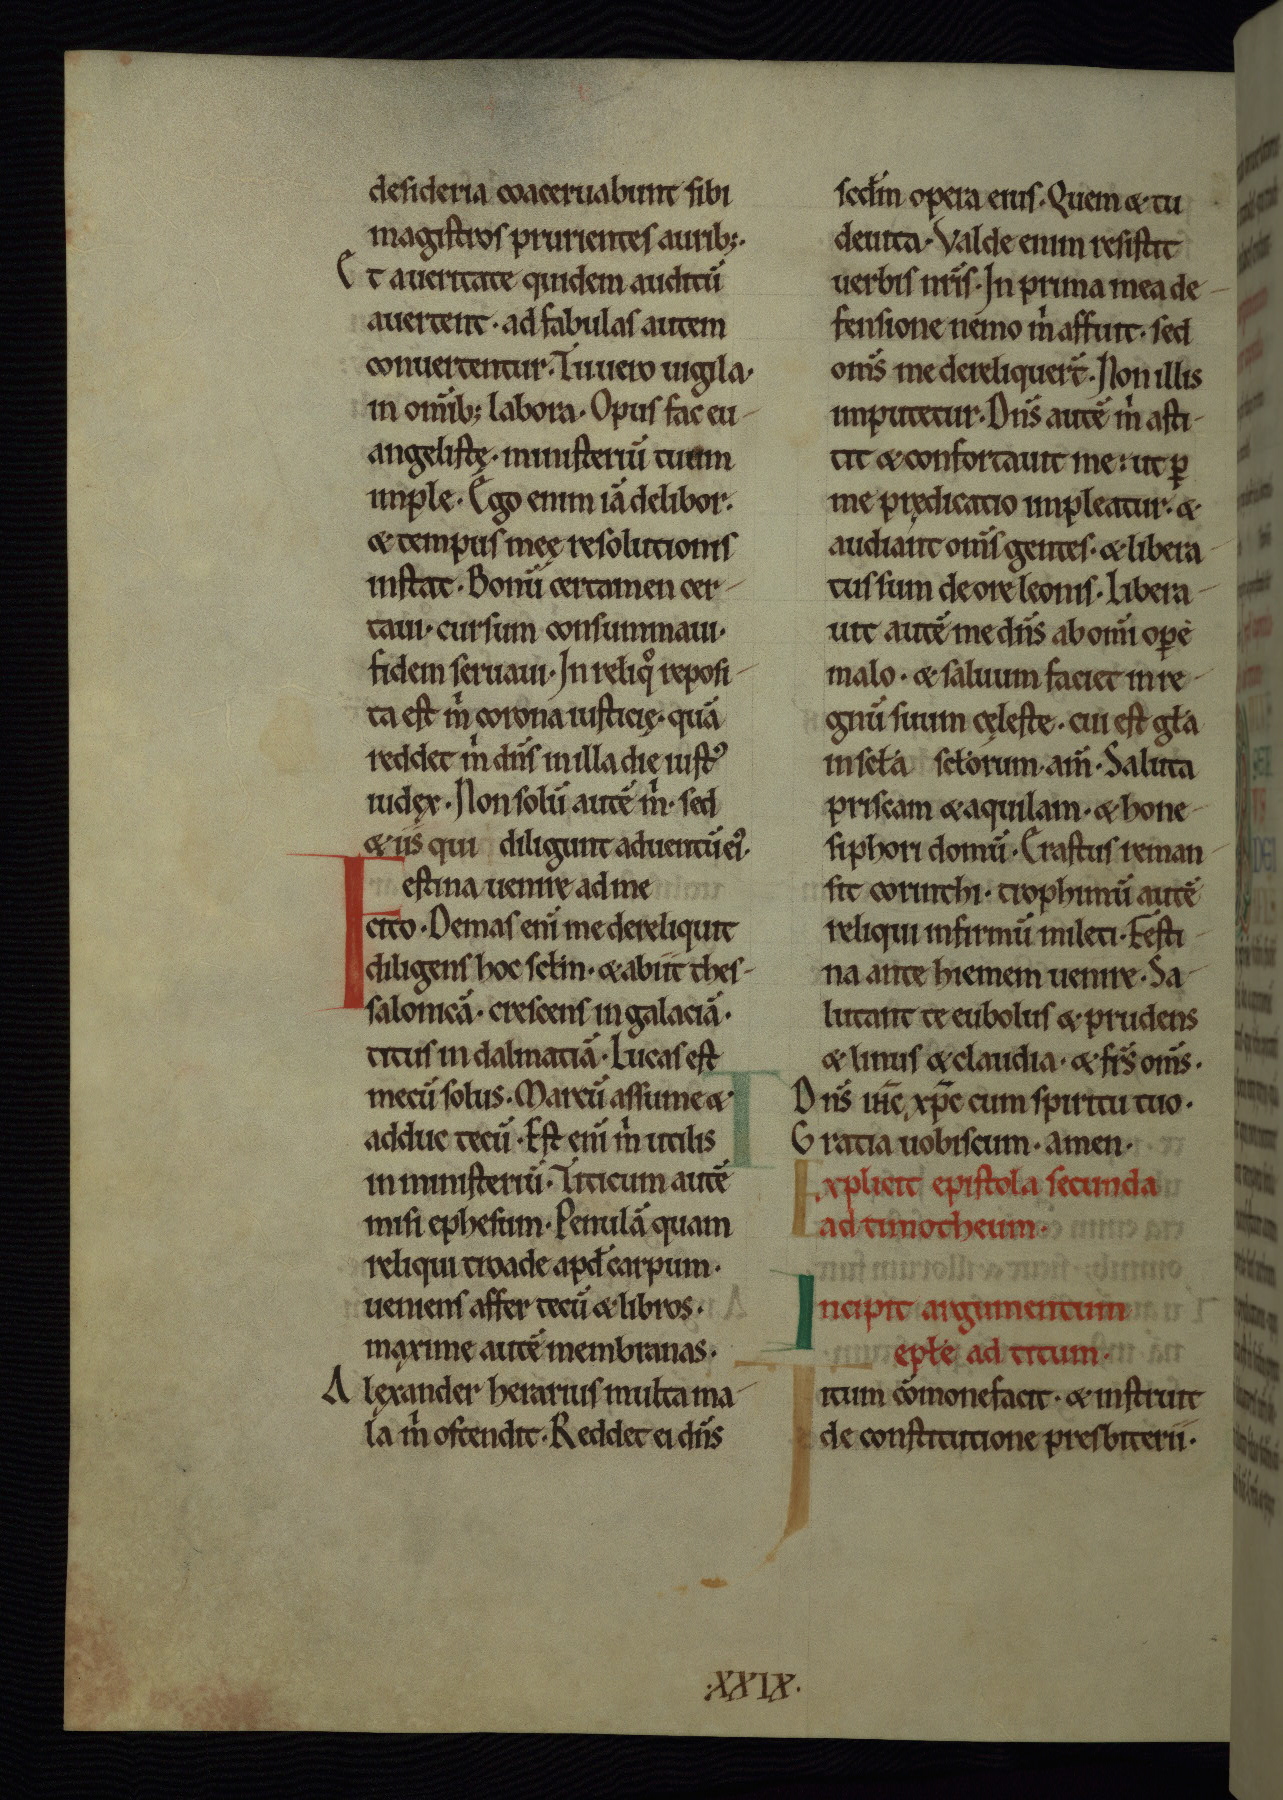 desideria coaceruabunt sibi
magistros prurientes aurib;·
Et aueritate quidem auditū
auertent· ad fabulas autem
conuertentur· Tu uero uigila·
in om̄ib; labora· Opus fac eu-
angelistę· ministeriū tuum
imple· Ego enim iā delibor·
& tempus meę resolutionis
instat· Bonū certamen cer-
taui· cursum consummaui·
fidem seruaui· In reliq̊ reposi-
ta est m̍ corona iusticię· quā
reddet m̍ dn̄s in illa die iustꝰ
iudęx· Non solū autē m̍· sed
& iis qui diligunt aduentū eiꝰ·
Festina uenire ad me
cito· Demas eni̅ me dereliquit
diligens hoc sc̄lm· & abiit thes-
salonicā· crescens in galaciā·
titus in dalmatiā· Lucas est
mecū solus· Marcū assume &
adduc tecū· Est eni̅ m̍ utilis
in ministeriū· Titicum autē
misi ephesum· Penulā quam
reliqui troade apđ carpum·
ueniens affer tecū & libros·
maxime autē membranas·
Alęxander herarius multa ma-
la m̍ ostendit· Reddet ei dn̄s
scđm opera eius· Quem & tu
deuita· Valde enim resistit
uerbis nr̄is· In prima mea de-
fensione nemo m̍ affuit· sed
om̄s me dereliquer̄t· Non illis
imputetur· Dn̄s autē m̍ asti-
tit & confortauit me: ut ꝑ
me prędicatio impleatur· &
audiant om̄s gentes· & libera-
tus sum de ore leonis· Libera-
uit autē me dn̄s ab omi̅ oꝑe
malo· & saluum faciet in re-
gnū suum cęleste· cui est gła
in scła scłorum· am̄· Saluta
priscam & aquilam· & hone-
siphori domū· Erastus reman-
sit corinthi· trophimū autē
reliqui infirmū mileti· Festi-
na ante hiemem uenire· Sa-
lutant te eubolus & prudens
& linus & claudia· & fr̄s om̄s·
Dn̄s ih̄c xp̄c cum spiritu tuo·
Gratia uobiscum· amen·
Explicit epistola secunda
ad timotheum·
Incipit argumentum
epłe ad titum·
Titum cōmonefacit· & instruit
de constitutione presbiterii·
·XXIX·